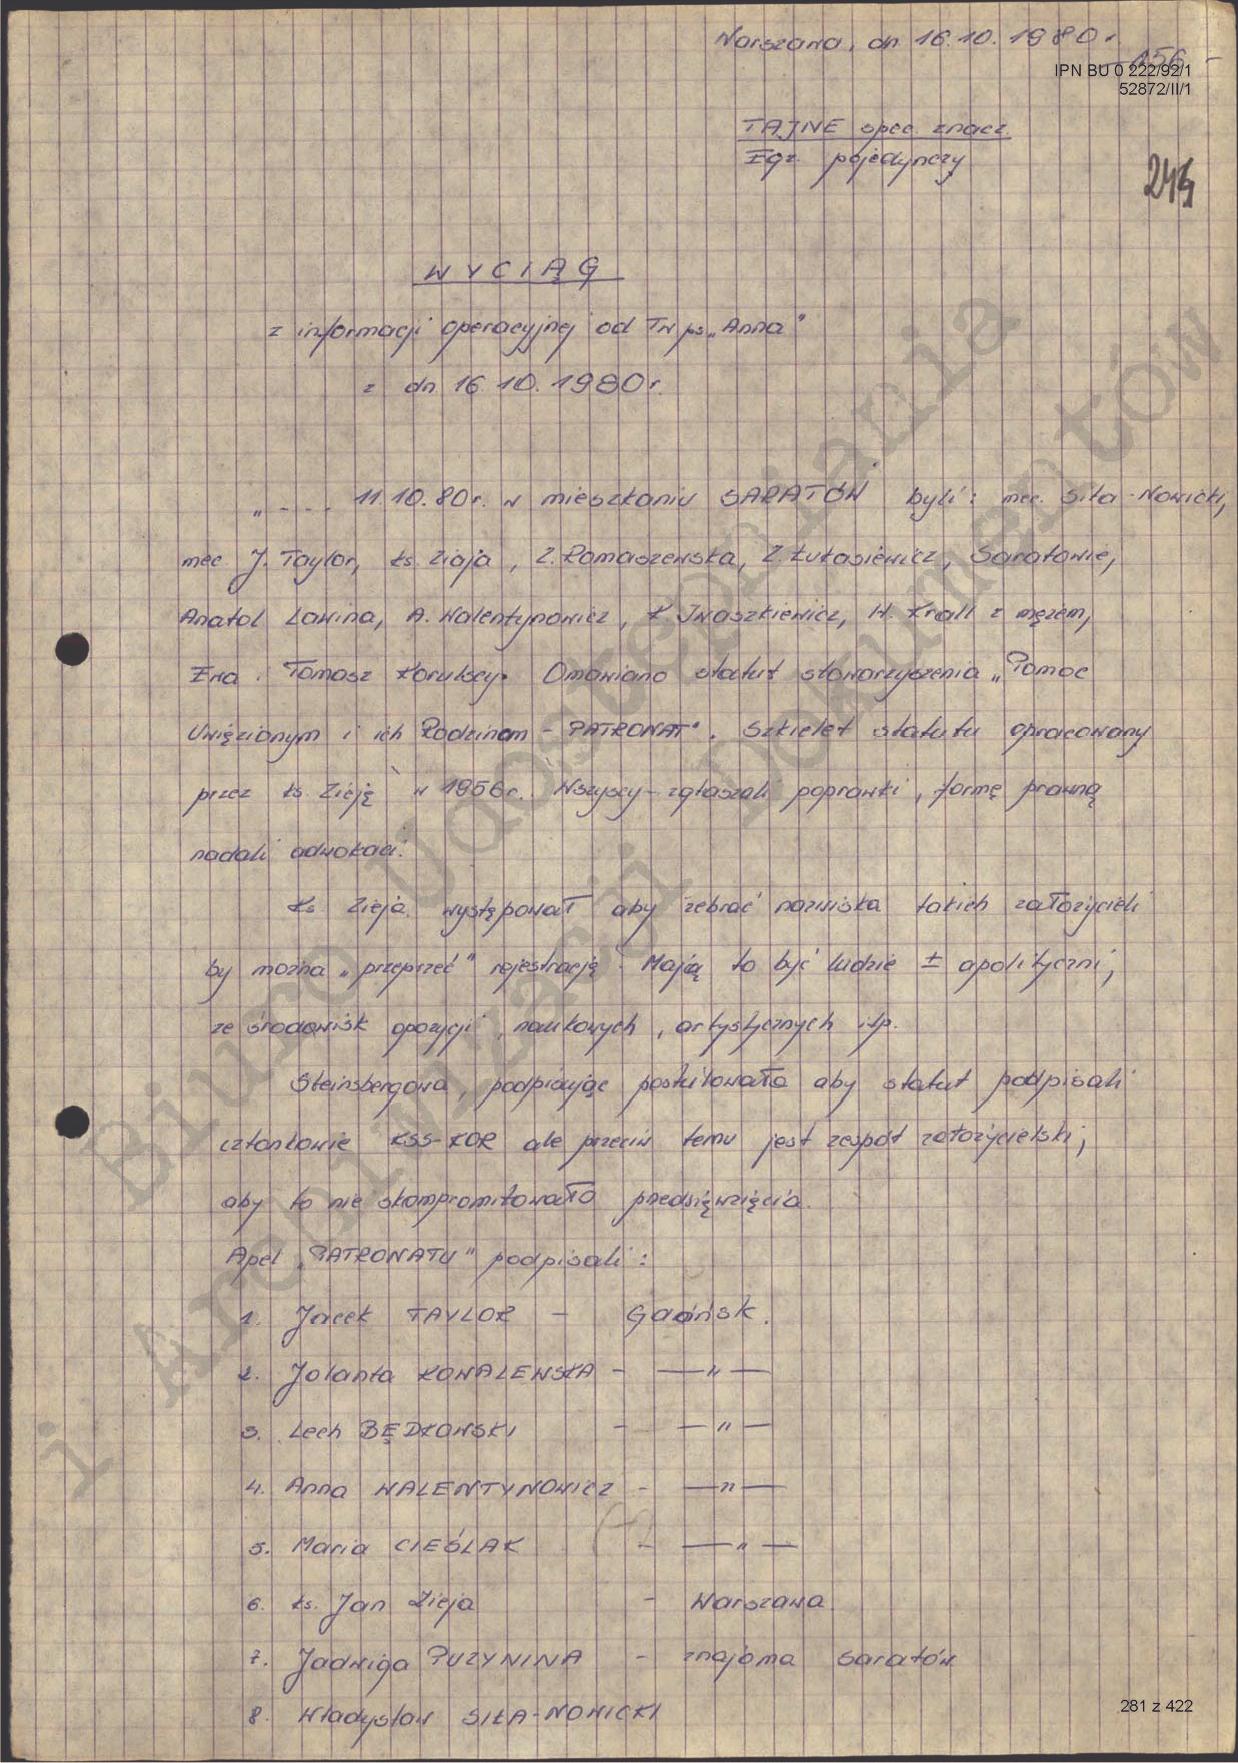 Warszawa, dn 16.10.1980r.
- 156 -
IPN BU 0 222/92/1
52872/II/1
TAJNE spec. znacz.
Egz. pojedynczy
244
WYCIĄG
z informacji operacyjnej od TW ps „Anna"
z dn 16.10.1980r.
„---- 11.10.80r. w mieszkaniu SARATÓW byli: mec. Siła-Nowicki,
mec J. Taylor, ks. Zieja, Z. Romaszewska, Z. Łukasiewicz, Saratowie,
Anatol Lawina, A. Walentynowicz, K Iwaszkiewicz, H. Krall z mężem,
Ewa i Tomasz Korulscy. Omawiano statut stowarzyszenia „Pomoc
Uwięzionym i ich Rodzinom - PATRONAT". Szkielet statutu opracowany
przez ks. Zieję w 1956r. Wszyscy zgłaszali poprawki, formę prawną
nadali adwokaci.
Ks Zieja występował aby zebrać nazwiska takich założycieli
by można „przeprzeć" rejestrację. Mają to być ludzie ± apolityczni,
ze środowisk opozycji, naukowych, artystycznych itp.
Steinsbergowa, podpisując postulowała aby statut podpisali
członkowie KSS-KOR ale przeciw temu jest zespół założycielski,
aby to nie skompromitowało przedsięwzięcia.
Apel „PATRONATU" podpisali:
1. Jacek TAYLOR - Gdańsk.
2. Jolanta KOWALEWSKA - —„—
3. Lech BĘDKOWSKI - —„—
4. Anna WALENTYNOWICZ - —„—
5. Maria CIEŚLAK - —„—
6. ks. Jan Zieja - Warszawa
7. Jadwiga PUZYNINA - znajoma Saratów
8. Władysław SIŁA-NOWICKI
281 z 422
Biuro Udostępniania
i Archiwizacji Dokumentów